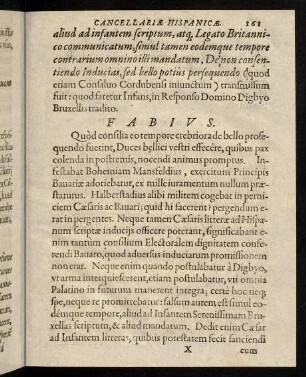 CANCELLARIÆ HISPANICÆ. 161
aliud ad infantem scriptum, atq́, Legato Britanni-
co communicatum, simul tamen eodemque tempore
contrarium omnino illi mandatum, De non consen-
tiendo Inducias, sed bello potius persequendo (quod
etiam Consaluo Cordubensi iniunctum) transmissum
fuit: quod fatetur Infans, in Responso Domino Digbyo
Bruxellis tradito.
FABIVS.
Quòd consilia eo tempore crebriora de bello prose-
quendo fuerint, Duces bellici vestri effecêre, quibus pax
colenda in postremis, nocendi animus promptus. In-
festabat Bohemiam Mansfeldius, exercitum Principis
Bauariæ adoriebatur, ex mille iuramentum nullum præ-
staturus. Halberstadius alibi militem cogebat in perni-
ciem Cæsaris ac Bauari; quid hi facerent? pergendum e-
rat in pergentes. Neque tamen Cæsaris litteræ ad Hispa-
num scriptæ inducijs officere poterant, significabant e-
nim tantùm consilium Electoralem dignitatem conse-
rendi Bauaro, quod aduersus induciarum promissionem
non erat. Neque enim quando postulabatur à Digbyo,
vt arma interquiescerent, etiam postulabatur, vti omnia
Palatino in futurum manerent integra; certè hoc neq́;
spe, neque re promittebatur: falsum autem est simul eo-
démque tempore, aliud ad Infantem Serenissimam Bru-
xellas scriptum, & aliud mandatum. Dedit enim Cæsar
ad Infantem litteras, quibus potestatem fecit sanciendi
X cum